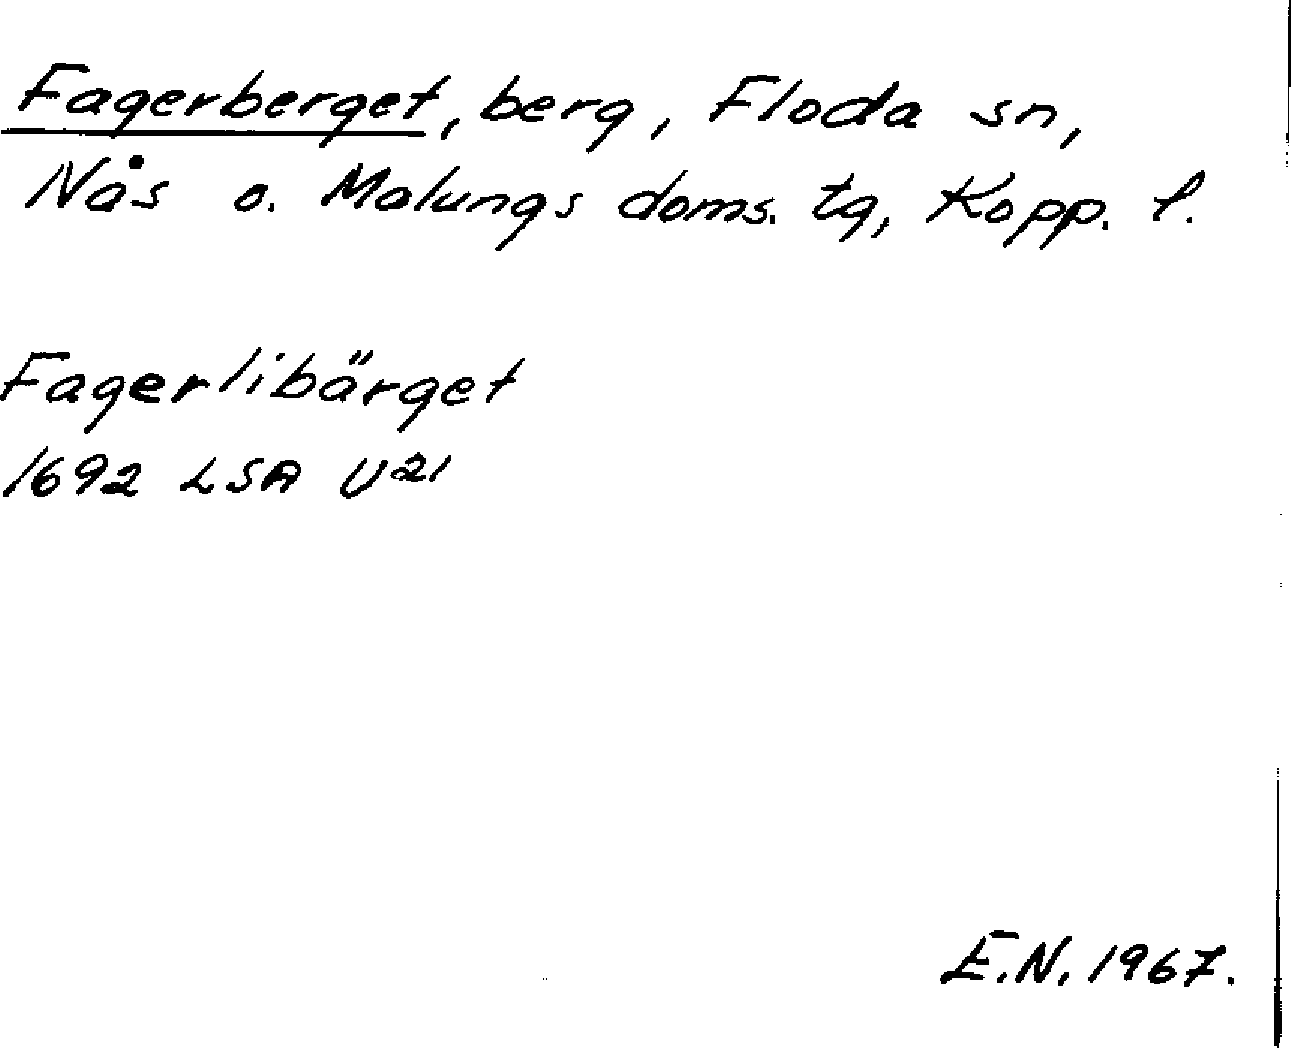 Fagerberget, berg, Floda sn,
Nås o. Malungs doms. tg, Kopp. l.
Fagerlibärget
1692 LSA U21
E.N. 1967.